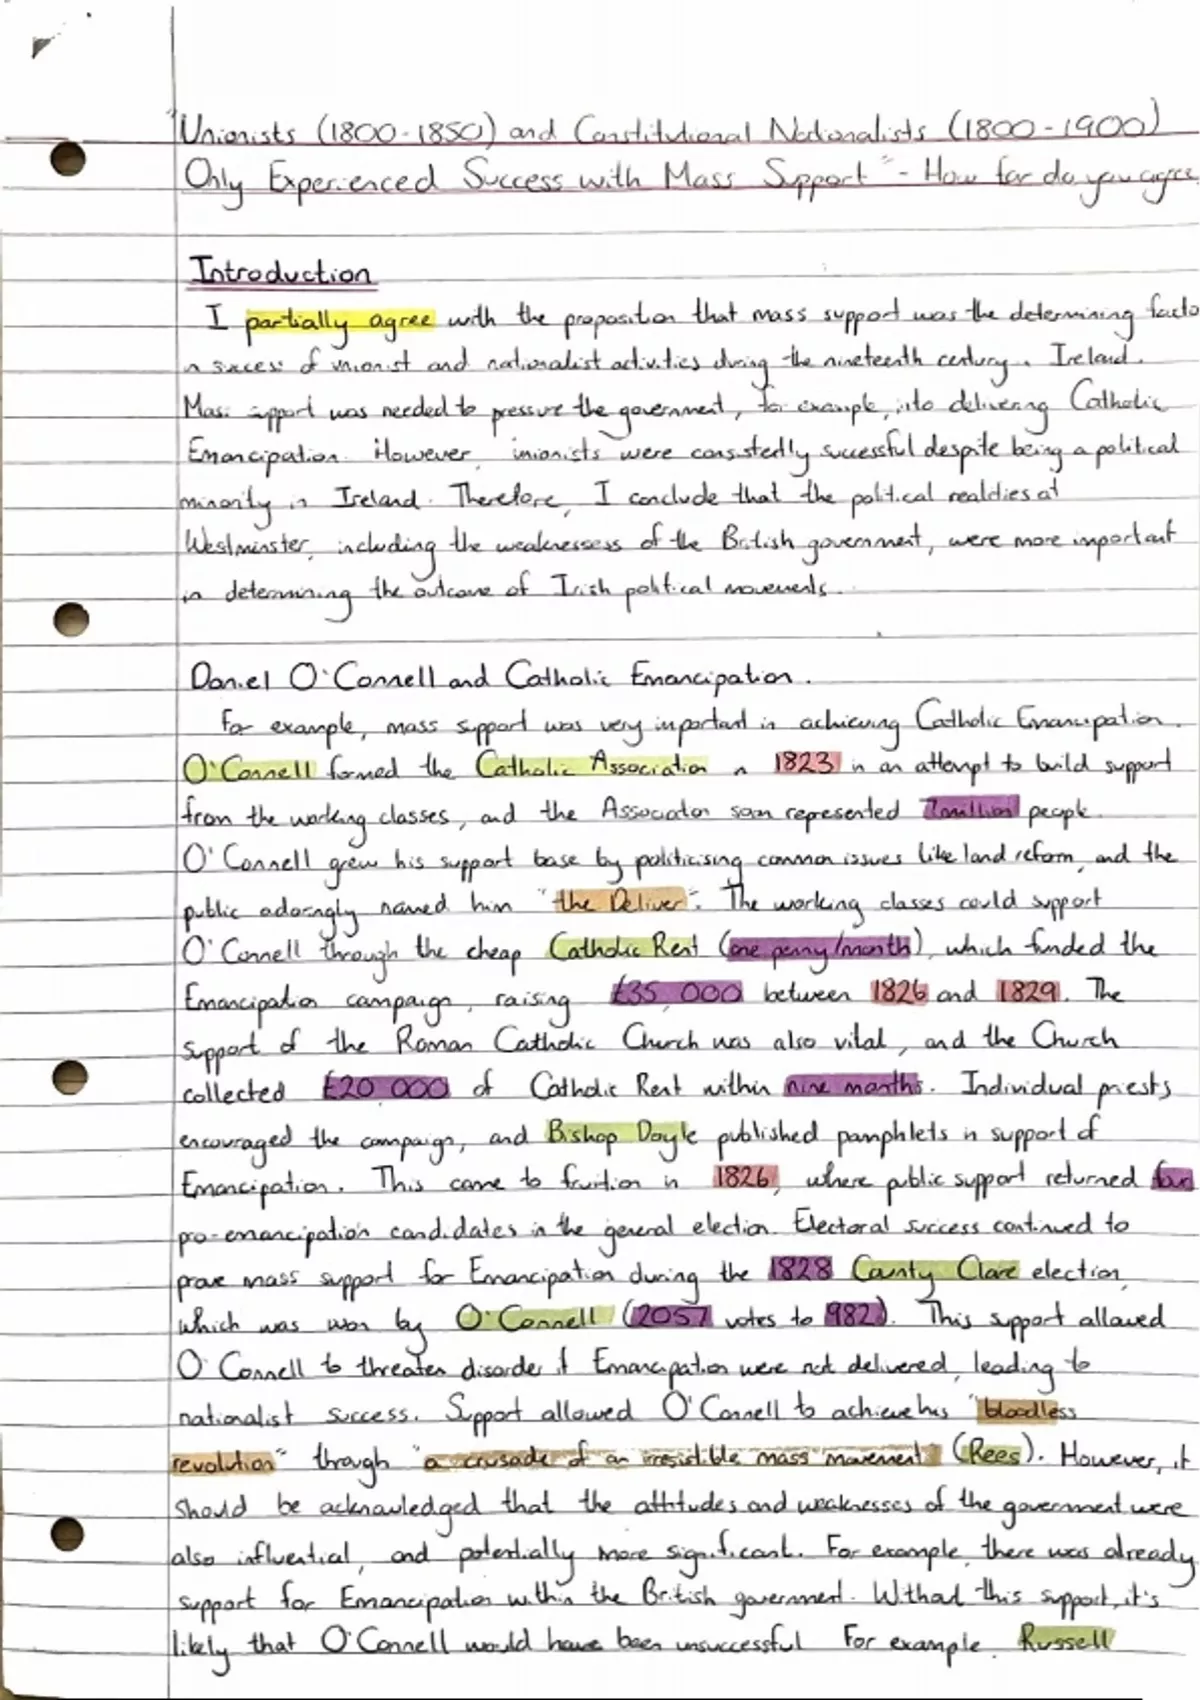 "Unionists (1800-1850) and Constitutional Nationalists (1800-1900)
Only Experienced Success with Mass Support" - How far do you agree
Introduction
I partially agree with the proposition that mass support was the determining facto
n success of unionist and nationalist activities during the nineteenth century Ireland.
Mass support was needed to pressure the government, for example, into delivering Catholic
Emancipation. However, unionists were consistedly successful despite being a political
minority in Ireland. Therefore, I conclude that the political realities at
Westminster, including the weaknessess of the British government, were more important
in determining the outcome of Irish political movements.
Daniel O'Connell and Catholic Emancipation.
For example, mass support was very important in achieving Catholic Emancipation.
O'Connell formed the Catholic Association n 1823 in an attempt to build support
from the working classes, and the Association soon represented 7million people.
O'Connell grew his support base by politicising common issues like land reform, and the
public adoringly named him "the Deliver". The working classes could support
O'Connell through the cheap Catholic Rent (one penny/month), which funded the
Emancipation campaign, raising £35,000 between 1826 and 1829. The
support of the Roman Catholic Church was also vital, and the Church
collected £20 000 of Catholic Rent within nine months. Individual priests
encouraged the campaign, and Bishop Doyle published pamphlets in support of
Emancipation. This came to fruition in 1826, where public support returned four
pro-emancipation candidates in the general election. Electoral success continued to
prove mass support for Emancipation during the 1828 County Clare election,
which was won by O'Connell (2057 votes to 982). This support allowed
O'Connell to threaten disorder if Emancipation were not delivered, leading to
nationalist success. Support allowed O'Connell to achieve his "bloodless
revolution" through "a crusade of an irresistible mass movement" (Rees). However, it
should be acknowledged that the attitudes and weaknesses of the government were
also influential, and potentially more significant. For example, there was already
support for Emancipation within the British government. Without this support, it's
likely that O'Connell would have been unsuccessful. For example, Russell